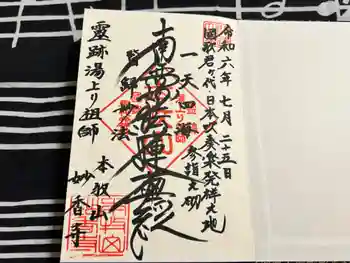 令和六年七月二十五日
国歌君が代日本吹奏楽発祥之地
一天四海
参詣之砌
南無妙法蓮華経
皆帰妙法
霊跡湯上り祖師
本牧山
妙香寺